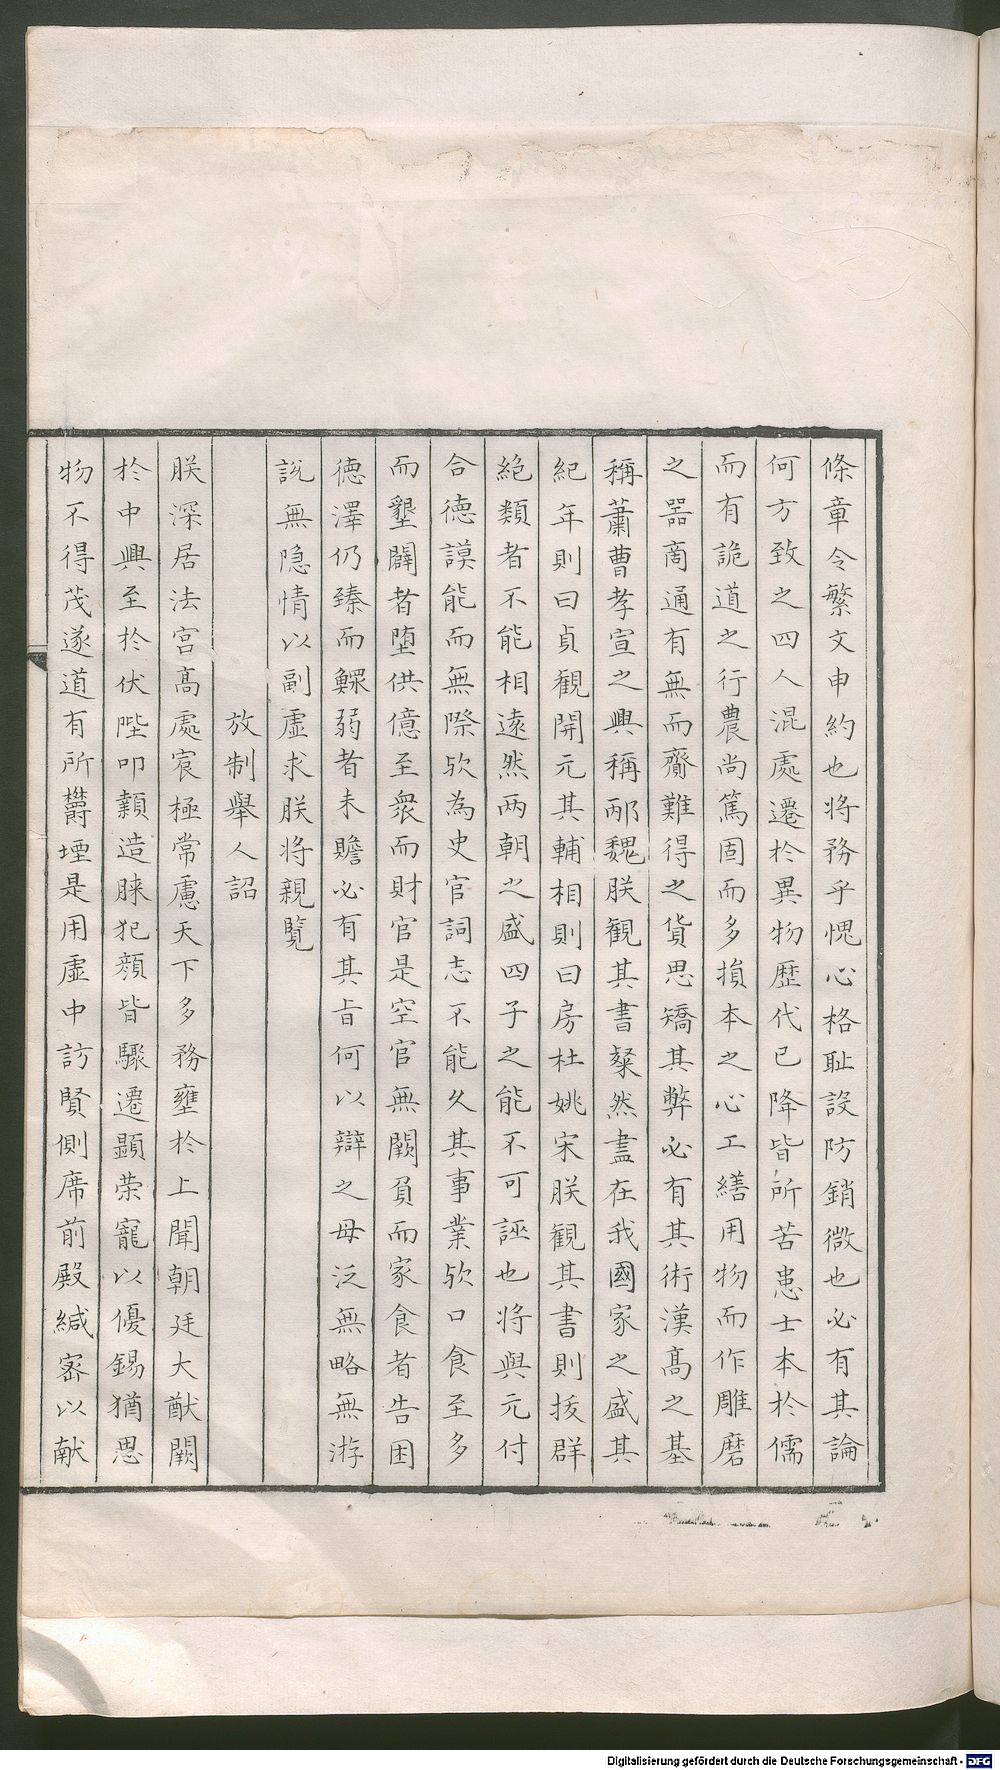 條章令繁文申約也将務乎愧心格耻設防銷微也必有其論
何方致之四人混處遷於異物歷代已降皆所苦患士本於儒
而有詭道之行農尚篤固而多損本之心工繕用物而作雕磨
之器商通有無而齎難得之貨思矯其弊必有其術漢髙之基
稱蕭曹孝宣之興稱邴魏朕觀其書粲然盡在我國家之盛其
紀年則曰貞觀開元其輔相則曰房杜姚宋朕觀其書則拔群
絶類者不能相逺然两朝之盛四子之能不可誣也将與元付
合德謨能而無際欤為史官詞志不能久其事業欤口食至多
而墾闢者堕供億至衆而財官是空官無闕負而家食者告困
德澤仍臻而鰥弱者未贍必有其旨何以辯之毋泛無略無游
説無隐情以副虚求朕将親覽
放制舉人詔
朕深居法宫髙處宸極常慮天下多務壅於上聞朝廷大猷闕
於中興至於伏陛叩顙造膝犯顔皆驟遷顯荣寵以優錫猶思
物不得茂遂道有所欝堙是用虚中訪賢側席前殿緘宻以献
Digitalisierung gefördert durch die Deutsche Forschungsgemeinschaft - DFG